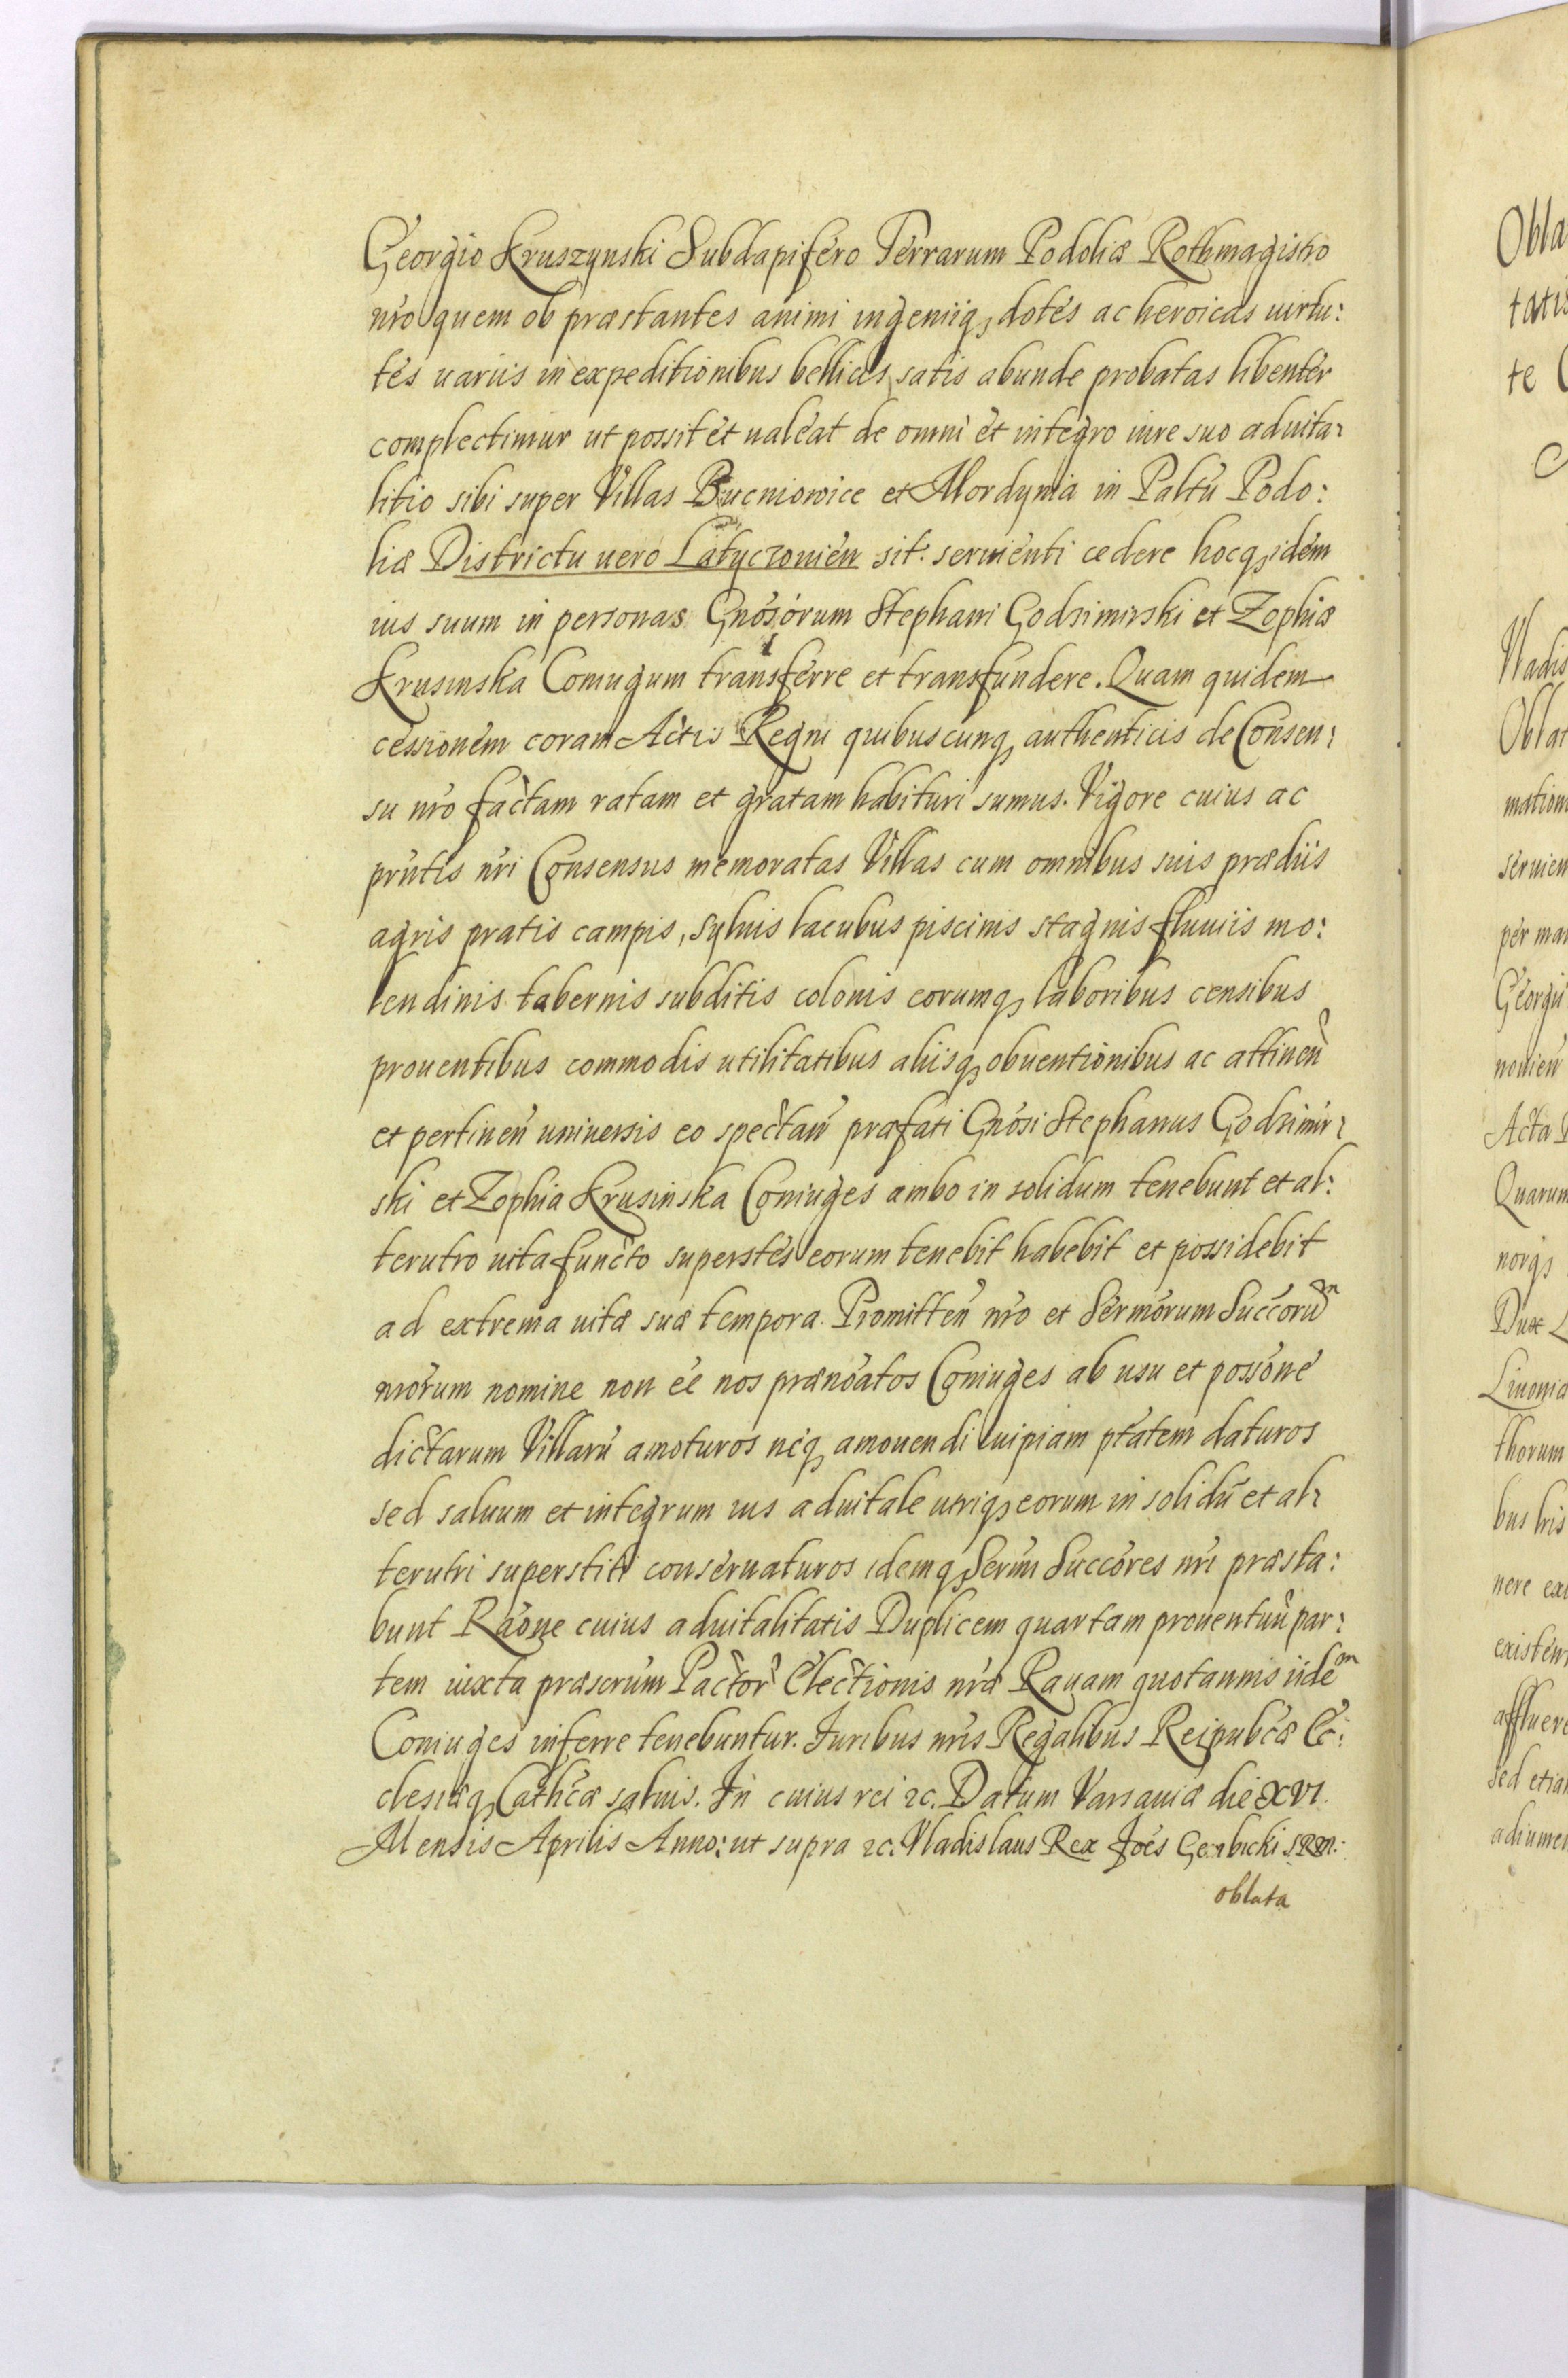 Georgio Kruszynski Subdapifero Terrarum Podoliæ Rothmagistro
nr̃o quem ob præstantes animi ingeniiq₃ dotes ac heroicas uirtu:
tes uariis in expeditionibus bellicis satis abunde probatas libenter
complectimur ut possit et ualeat de omni et integro iure suo aduita:
litio sibi super Villas Bucniowice et Mordynia in Paltũ Podo:
liæ Districtu uero Latyczouień sit: seruienti cedere hocq₃ idem
ius suum in personas Gnõsorum Stephani Godzimirski et Zophiæ
Krusinska Coniugum transferre et transfundere. Quam quidem
cessionem coram Actis Regni quibuscunq₃ authenticis de Consen:
su nr̃o factam ratam et gratam habituri sumus. Vigore cuius ac
prñtis nr̃i Consensus memoratas Villas cum omnibus suis prædiis
agris pratis campis, syluis lacubus piscinis stagnis fluuiis mo:
lendinis tabernis subditis colonis eorumq₃ laboribus censibus
prouentibus commodis utilitatibus aliisq₃ obuentionibus ac attineñ
et pertineñ uniuersis eo spectañ præfati Gnõsi Stephanus Godzimir:
ski et Zophia Krusinska Coniuges ambo in solidum tenebunt et al:
terutro uita functo superstes eorum tenebit habebit et possidebit
ad extrema uitæ suæ tempora. Promitteñ nr̃o et Sermõrum Succõrum
nrõrum nomine non eẽ nos prænõatos Coniuges ab usu et possõne
dictarum Villarũ amoturos neq₃ amouendi cuipiam ptãtem daturos
sed saluum et integrum ius aduitale utriq₃ eorum in solidũ et al:
terutri superstiti conseruaturos idemq₃ Serm̃i Succõres nr̃i præsta:
bunt Raõne cuius aduitalitatis Duplicem quartam prouentuũ par:
tem iuxta præscrũm Pactor̃ Electionis nr̃æ Rauam quotannis iidem
Coniuges inferre tenebuntur. Iuribus nr̃is Regalibus Reipubcæ Ec:
clesiæq₃ Cathcæ saluis. In cuius rei &c. Datum Varsauiæ die XVI
Mensis Aprilis Anno: ut supra &c. Vladislaus Rex Joẽs Gembicki SRM:
oblata
Obla
te
Vladis
Oblat
mation
seruien
per man
Georgii
nouień
Acta
Quarum
norq₃
Dux L
Liuonia
thorum
bus
nere ex
existen
affluere
sed etia
adiumen